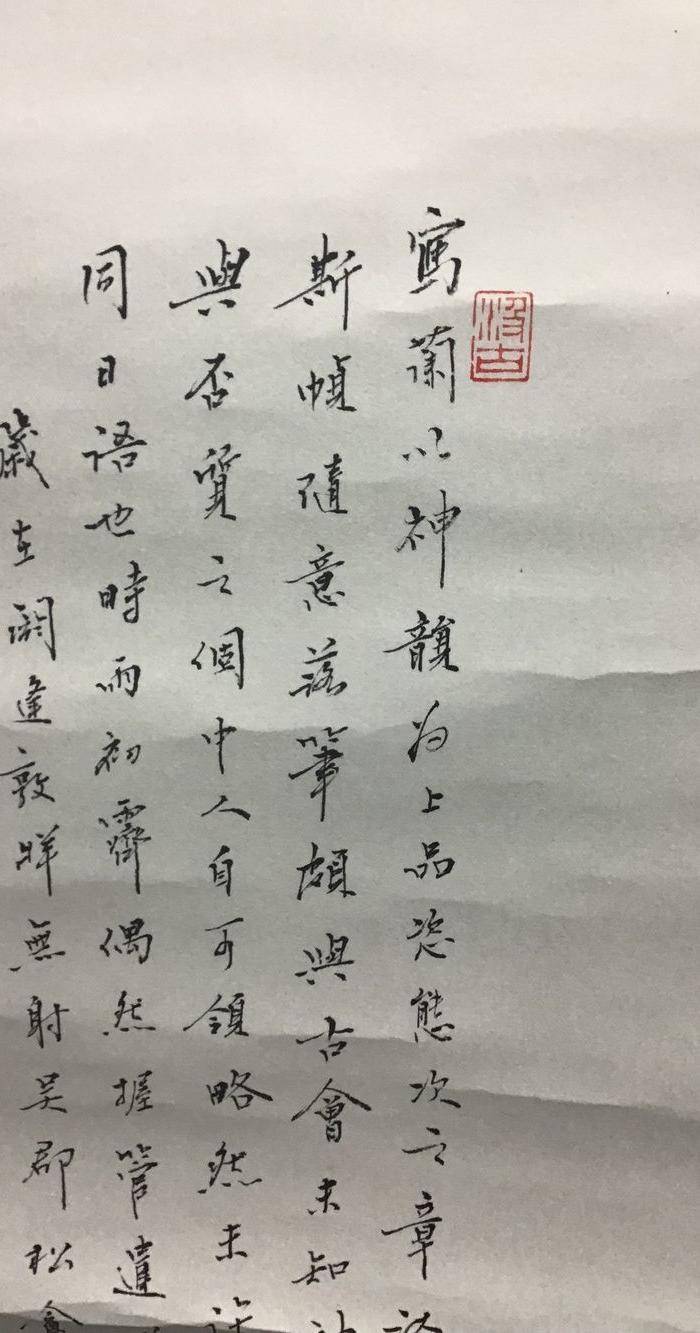 寫蘭以神韻為上品恣態次之章法
斯幀隨意落筆頗與古會未知神
與否質之個中人自可領略然未許
同日語也時雨初霽偶然握管遣
歲在閼逢敦牂無射吳郡松盦